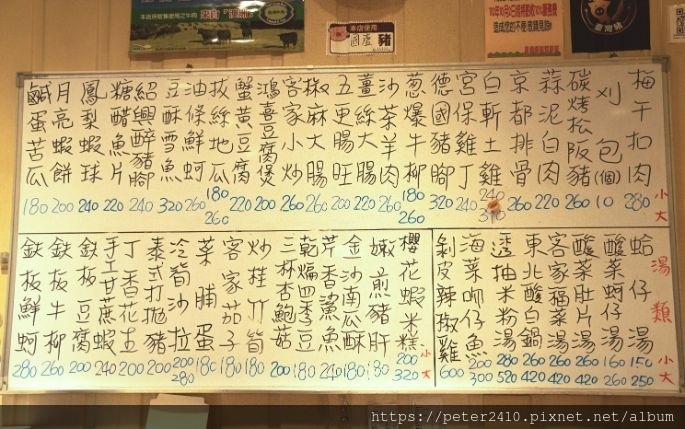 本店使用
國產豬
台灣豬
梅干扣肉 280 小大
刈包(個) 10
碳烤松阪豬 260
蒜泥白肉 220
京都排骨 260
白斬土雞 240 310
宮保雞丁 240
德國豬腳 320
蔥爆牛柳 180 260
沙茶羊肉 260
薑絲大腸 220
五更腸旺 200
椒麻大腸 260
客家小炒 260
鴻喜豆腐煲 200
蟹黃豆腐 220
拔絲地瓜 180 260
油條鮮蚵 260
豆酥雪魚 320
紹興醉豬腳 240
糖醋魚片 220
鳳梨蝦球 240
月亮蝦餅 200
鹹蛋苦瓜 180
湯類 小大
蛤仔湯 150 250
酸菜蚵仔湯 160 260
酸菜肚片湯 260 420
客家福菜湯 260 420
東北酸白菜鍋 260 420
透抽米粉湯 280 520
海菜吻仔魚 200 300
剝皮辣椒雞 600
櫻花蝦米糕 200 320 小大
嫩煎豬肝 180
金沙南瓜酥 180
芹香鯊魚 240
乾煸四季豆 180
三杯杏鮑菇 200
炒桂竹筍 180
客家茄子 180
菜脯蛋 180
冷筍沙拉 200 280
泰式打拋豬 200
丁香花生 200
手工甘蔗蝦 240
鉄板豆腐 200
鉄板牛柳 260
鉄板鮮蚵 280
https://peter2410.pixnet.net/album